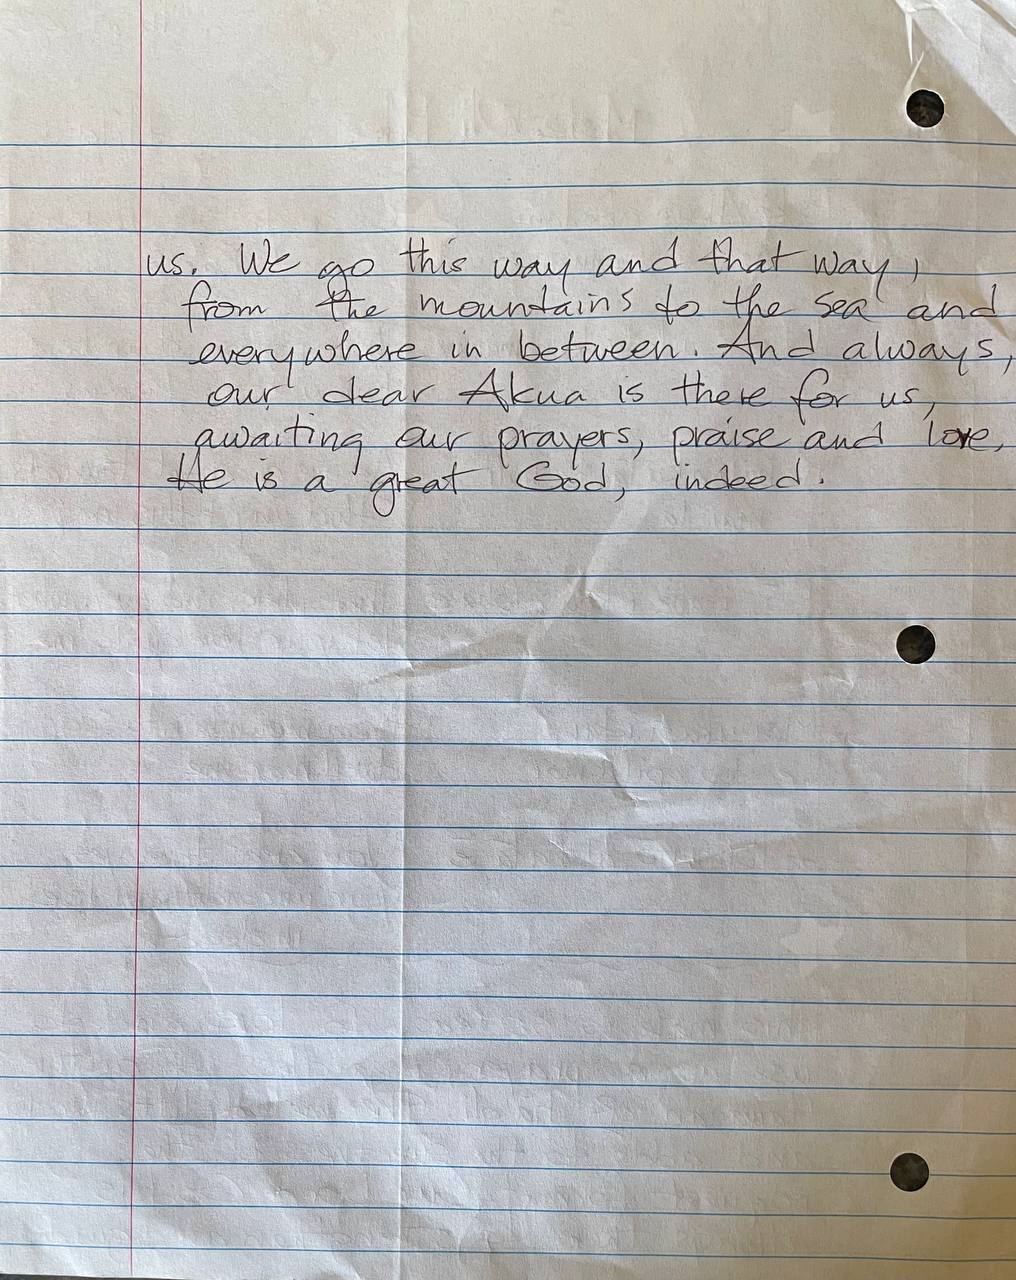 us. We go this way and that way,
from the mountains to the sea and
everywhere in between. And always,
our dear Akua is there for us,
awaiting our prayers, praise and love,
He is a great God, indeed.